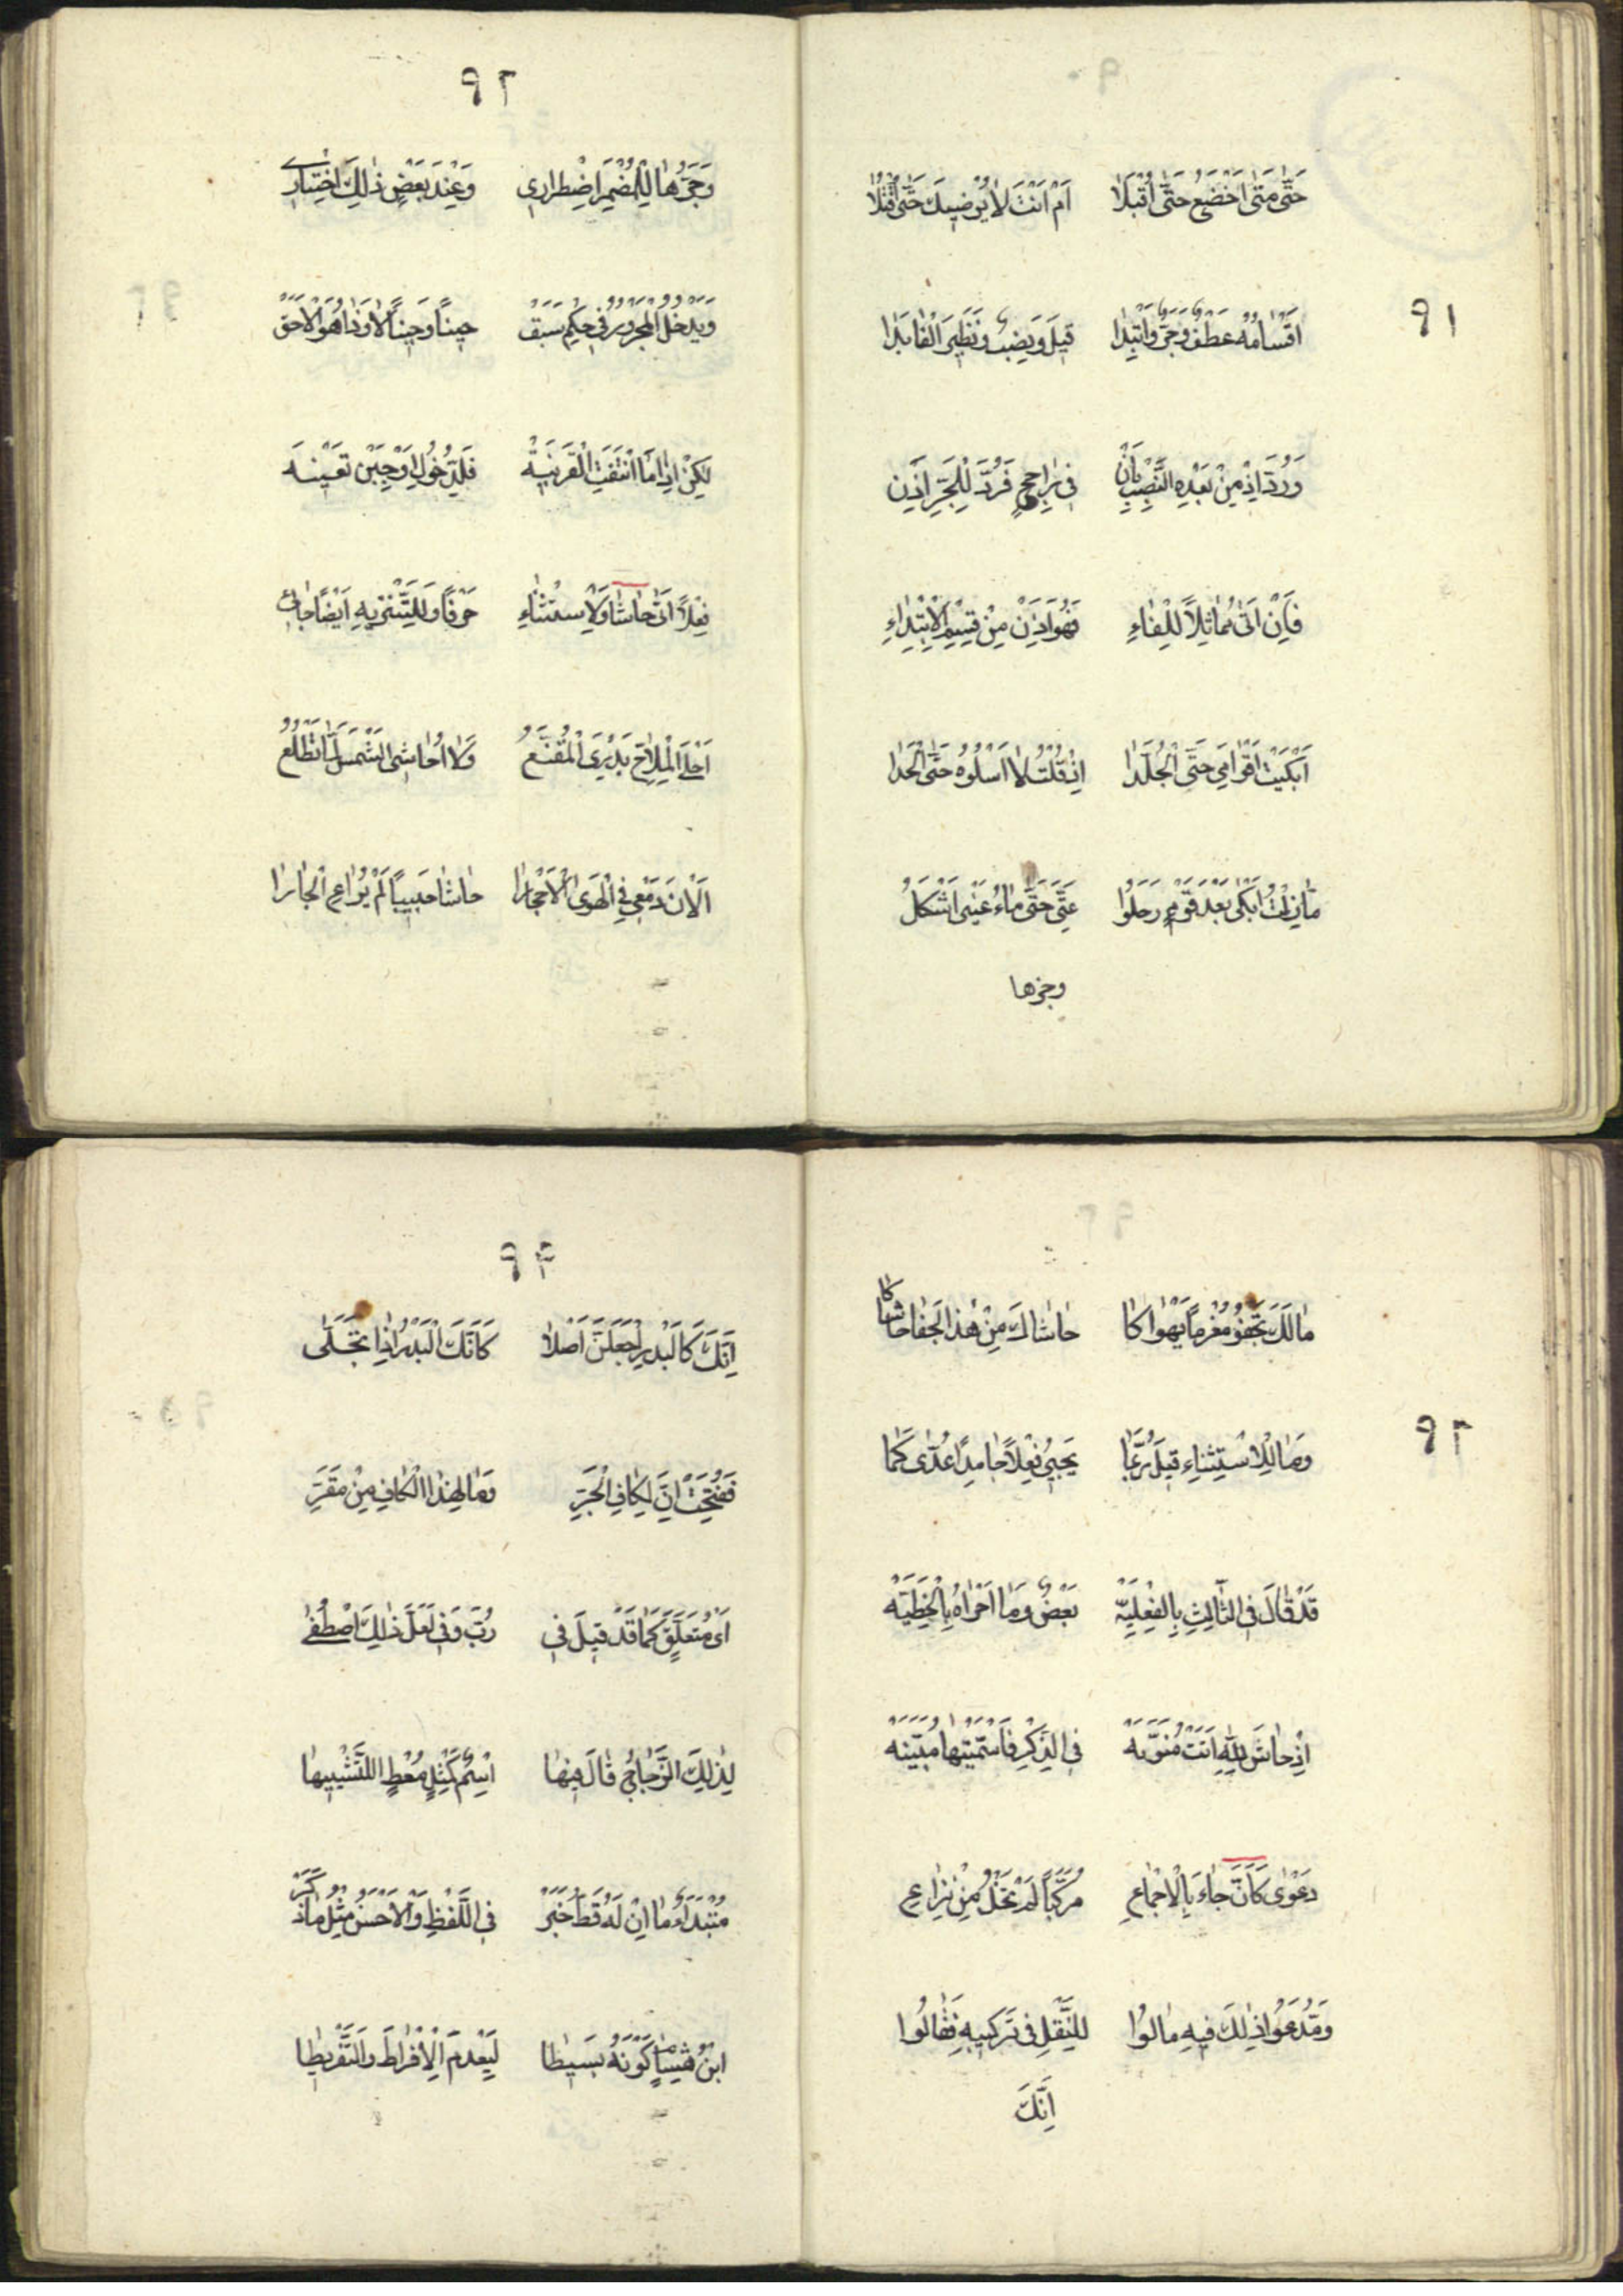 ٩١
حَتّٰى مَتٰى اَخْضَعُ حَتّٰى اُقْبَلَا اَمْ اَنْتَ لَا يُرْضِيكَ حَتّٰى اُقْتَلَا
اَقْسَامُهُ عَطْفٌ وَجَرٌّ وَابْتِدَا قِيلَ وَنَصْبٌ وَنَظِيرَ الْفَا بَدَا
وَرُدَّ اِذْ مِنْ بَعْدِهِ النَّصْبُ بِاَنْ فِى رَاجِحٍ فَرُدَّ لِلْجَرِّ اِذَنْ
فَاِنْ اَتٰى مُمَاثِلًا لِلْفَاءِ فَهُوَ اِذَنْ مِنْ قِسْمِ الْاِبْتِدَاءِ
اَبْكَيْتَ اَقْوَامِى حَتَّى الْجُلَّدَا اِنْ قُلْتُ لَا اَسْلُوهُ حَتَّى الْحَدَا
مَا زِلْتُ اَبْكِى بَعْدَ قَوْمٍ رَحَلُوا عَنِّى حَتّٰى مَاءُ عَيْنِى اَشْكَلُ
وجرها
٩٢
وَجَرُّهَا لِلْمُضْمَرِ اضْطِرَارِى وَعِنْدَ بَعْضٍ ذٰلِكَ اخْتِيَارِى
وَيَدْخُلُ الْمَجْرُورُ فِى حُكْمٍ سَبَقْ حِينًا وَحِينًا لَا وَذَا هُوَ الْاَحَقّ
لٰكِنْ اِذَا مَا انْتَفَتِ الْقَرِينَةُ فَلِلدُّخُولِ اَوْجِبَنْ تَعْيِينَهُ
فِعْلًا اَتٰى حَاشَا وَلِاسْتِثْنَاءِ حَرْفًا وَلِلتَّنْزِيهِ اَيْضًا جَائِى
اَخْلَى الْمِلَاحَ بَدْرِىَ الْمُقَنَّعُ وَلَا اُحَاشِى الشَّمْسَ لَمَّا تَطْلُعُ
اَلَانَ دَمْعِى فِى الْهَوَى الْاَحْجَارَا حَاشَا حَبِيبًا لَمْ يُرَاعِ الْجَارَا
٩٣
مَا لَكَ تَجْفُو مُغْرَمًا يَهْوَاكَا حَاشَاكَ مِنْ هٰذَا الْجَفَا حَاشَاكَا
وَمَا لِلِاسْتِثْنَاءِ قِيلَ رُبَّمَا يَجِىءُ فِعْلًا جَامِدًا عُدِّى كَمَا
قَدْ قَالَ فِى الثَّالِثِ بِالْفِعْلِيَّهْ بَعْضٌ وَمَا اَحْرَاهُ بِالْخَطِيَّهْ
اِذْ حَاشَ لِلّٰهِ اَتَتْ مُنَوَّنَهْ فِى الذِّكْرِ فَاسْمِيَّتُهَا مُبَيَّنَهْ
دَعْوٰى كَاَنَّ جَاءَ بِالْاِجْمَاعِ مُرَكَّبًا لَمْ تَخْلُ مِنْ نِزَاعِ
وَمُدَّعُو ذٰلِكَ فِيهِ مَالُوا لِلنَّقْلِ فِى تَرْكِيبِهِ فَقَالُوا
اِنَّكَ
٩٤
اِنَّكَ كَالْبَدْرِ اجْعَلَنَّ اَصْلَا كَاَنَّكَ الْبَدْرُ اِذَا تَجَلّٰى
فَفُتِحَتْ اِنَّ لِكَافِ الْجَرِّ وَمَا لِهٰذَا الْكَافِ مِنْ مَقَرِّ
اَىْ مُتَعَلَّقٍ كَمَا قَدْ قِيلَ فِى رُبَّ وَفِى لَعَلَّ ذٰلِكَ اصْطُفِى
لِذٰلِكَ الزَّجَّاجُ قَالَ فِيهَا اسْمٌ كَمِثْلٍ مُعْطٍ التَّشْبِيهَا
مُبْتَدَاءٌ مَا اِنْ لَهُ قَطُّ خَبَرْ فِى اللَّفْظِ وَالْاَحْسَنُ مِثْلُ مَا ذَكَرْ
ابْنُ هِشَامٍ كَوْنُهُ بَسِيطَا لِيَعْدَمَ الْاِفْرَاطَ وَالتَّفْرِيطَا